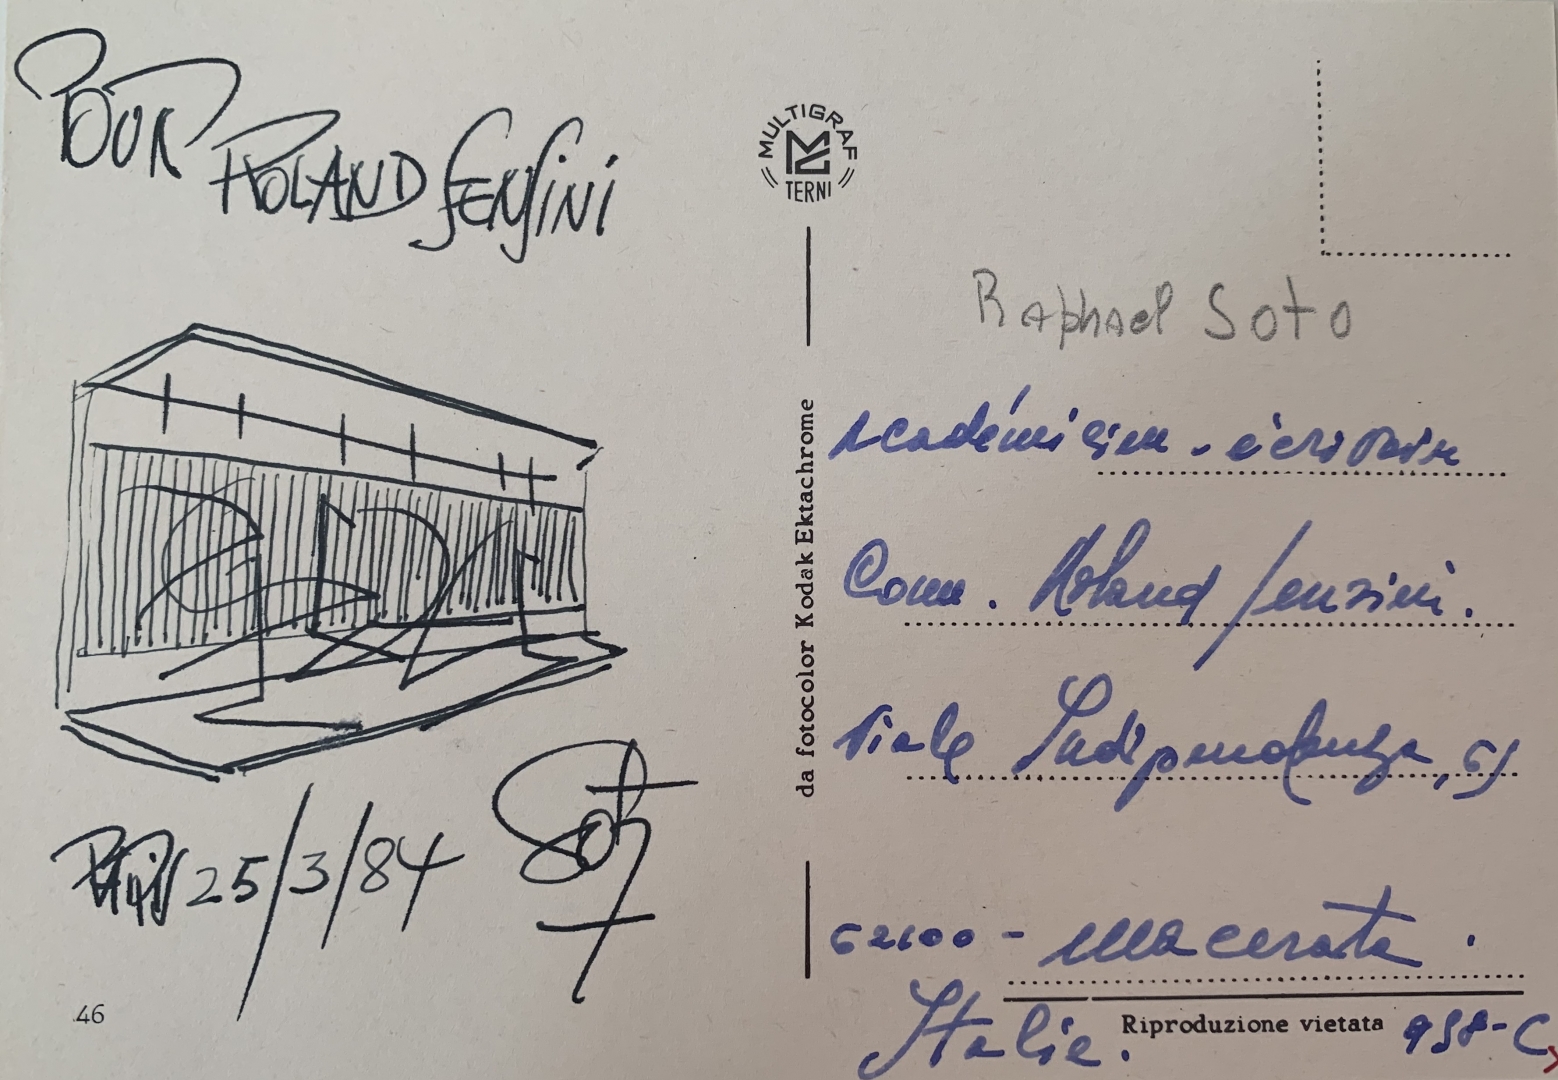 POUR
ROLAND SENSINI
PARIS 25/3/84
Soto
46
MULTIGRAF
TERNI
da fotocolor Kodak Ektachrome
Raphael Soto
Académicien - écrivain
Comm. Roland Sensini.
Viale Indipendenza,
62100 - Macerata.
Italie.
Riproduzione vietata
958-C